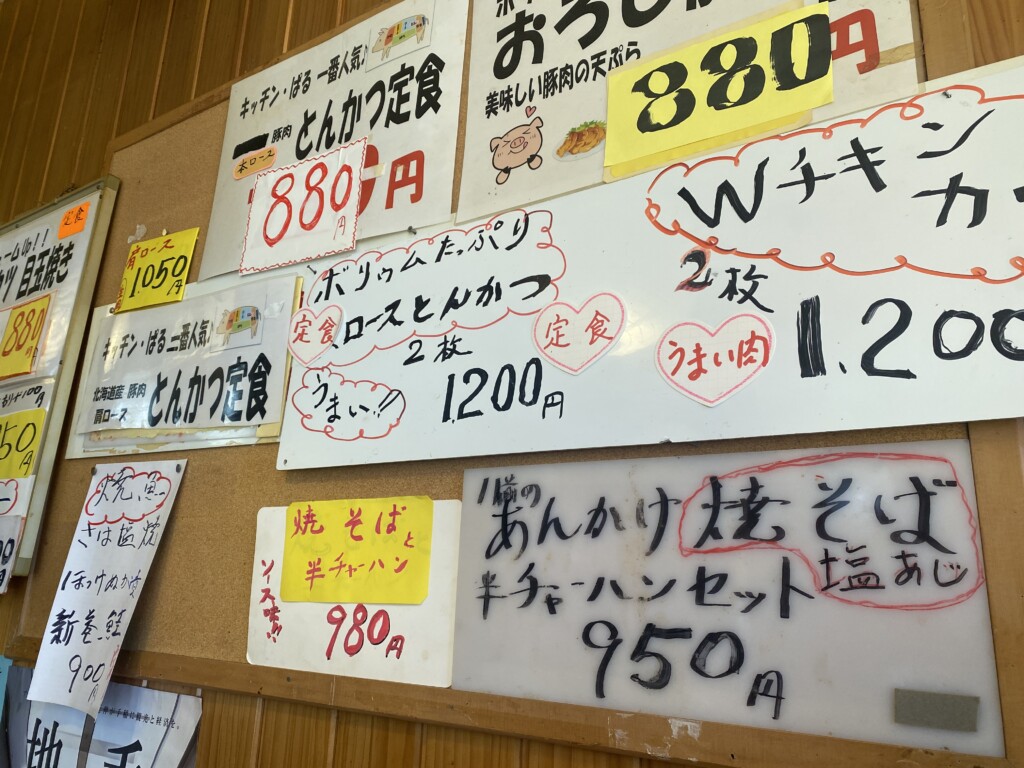 キッチン・ぱる 一番人気♪
豚肉 とんかつ定食
本ロース
880円
円
おろし
美味しい豚肉の天ぷら
880円
定食
目玉焼き
880
円
肩ロース
1050円
キッチン・ぱる 二番人気♪
北海道産 豚肉
肩ロース とんかつ定食
ボリゥムたっぷり
定食 ロースとんかつ 定食
2枚
うまい!! 1200円
Wチキン
カ
2枚
うまい肉 1.200
50円
焼魚
さば塩焼
ほっけぬか
新巻鮭
900円
焼そばと
半チャーハン
ソース味!!
980円
あんかけ焼そば
塩あじ
半チャーハンセット
950円